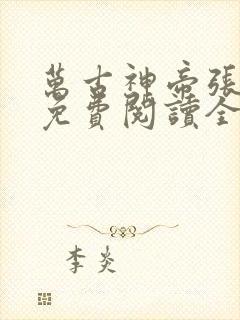 萬古神帝張
免費閱讀全
李炎